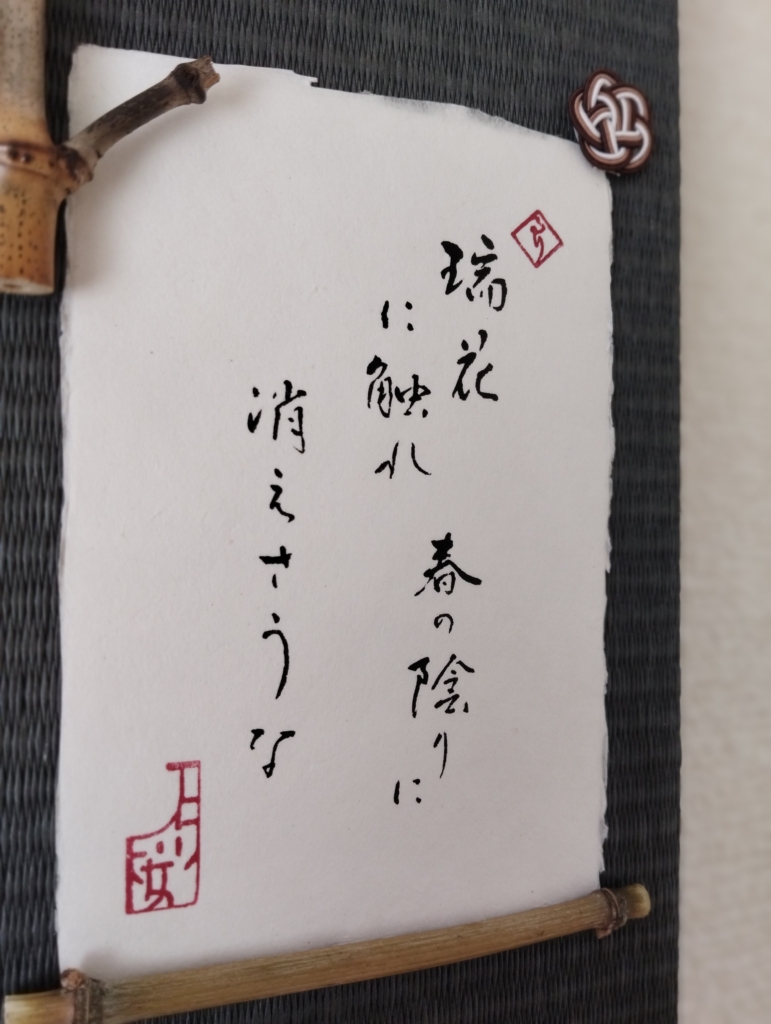 瑞花
に触れ
春の陰りに
消えさうな